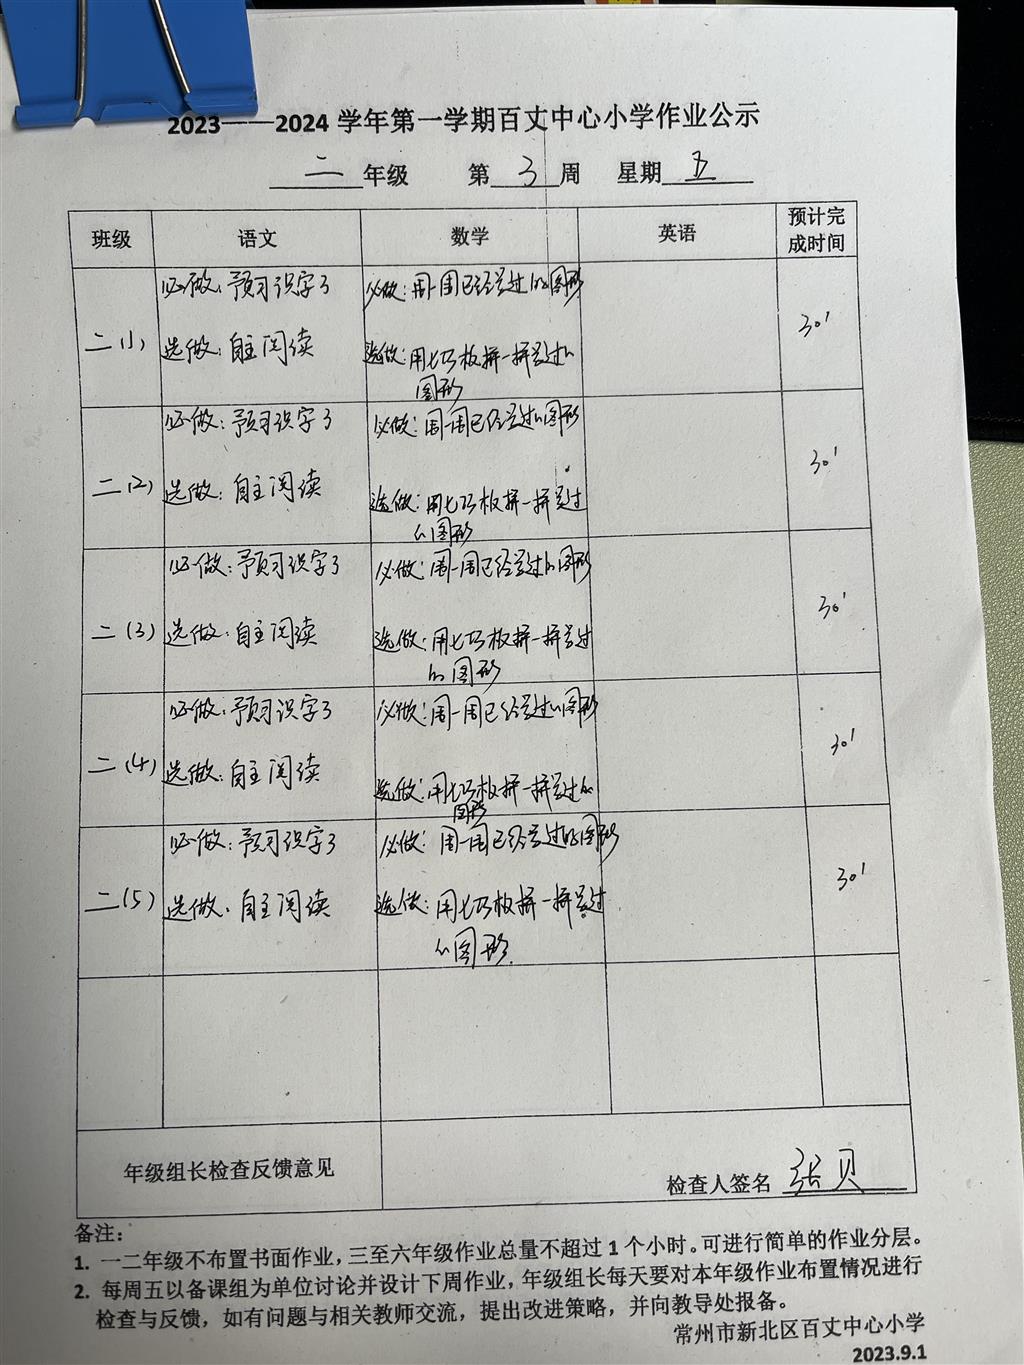 2023——2024 学年第一学期百丈中心小学作业公示
二年级 第3周 星期五
班级 语文 数学 英语 预计完成时间
二(1)
必做：预习识字3
选做：自主阅读
必做：周一周已经学过的图形
选做：用七巧板拼一拼学过的
图形
30'
二(2)
必做：预习识字3
选做：自主阅读
必做：周一周已经学过的图形
选做：用七巧板拼一拼学过
的图形
30'
二(3)
必做：预习识字3
选做：自主阅读
必做：周一周已经学过的图形
选做：用七巧板拼一拼学过
的图形
30'
二(4)
必做：预习识字3
选做：自主阅读
必做：周一周已经学过的图形
选做：用七巧板拼一拼学过的
图形
30'
二(5)
必做：预习识字3
选做：自主阅读
必做：周一周已经学过的图形
选做：用七巧板拼一拼学过
的图形
30'
年级组长检查反馈意见
检查人签名 张贝
备注：
1. 一二年级不布置书面作业，三至六年级作业总量不超过 1 个小时。可进行简单的作业分层。
2. 每周五以备课组为单位讨论并设计下周作业，年级组长每天要对本年级作业布置情况进行
检查与反馈，如有问题与相关教师交流，提出改进策略，并向教导处报备。
常州市新北区百丈中心小学
2023.9.1